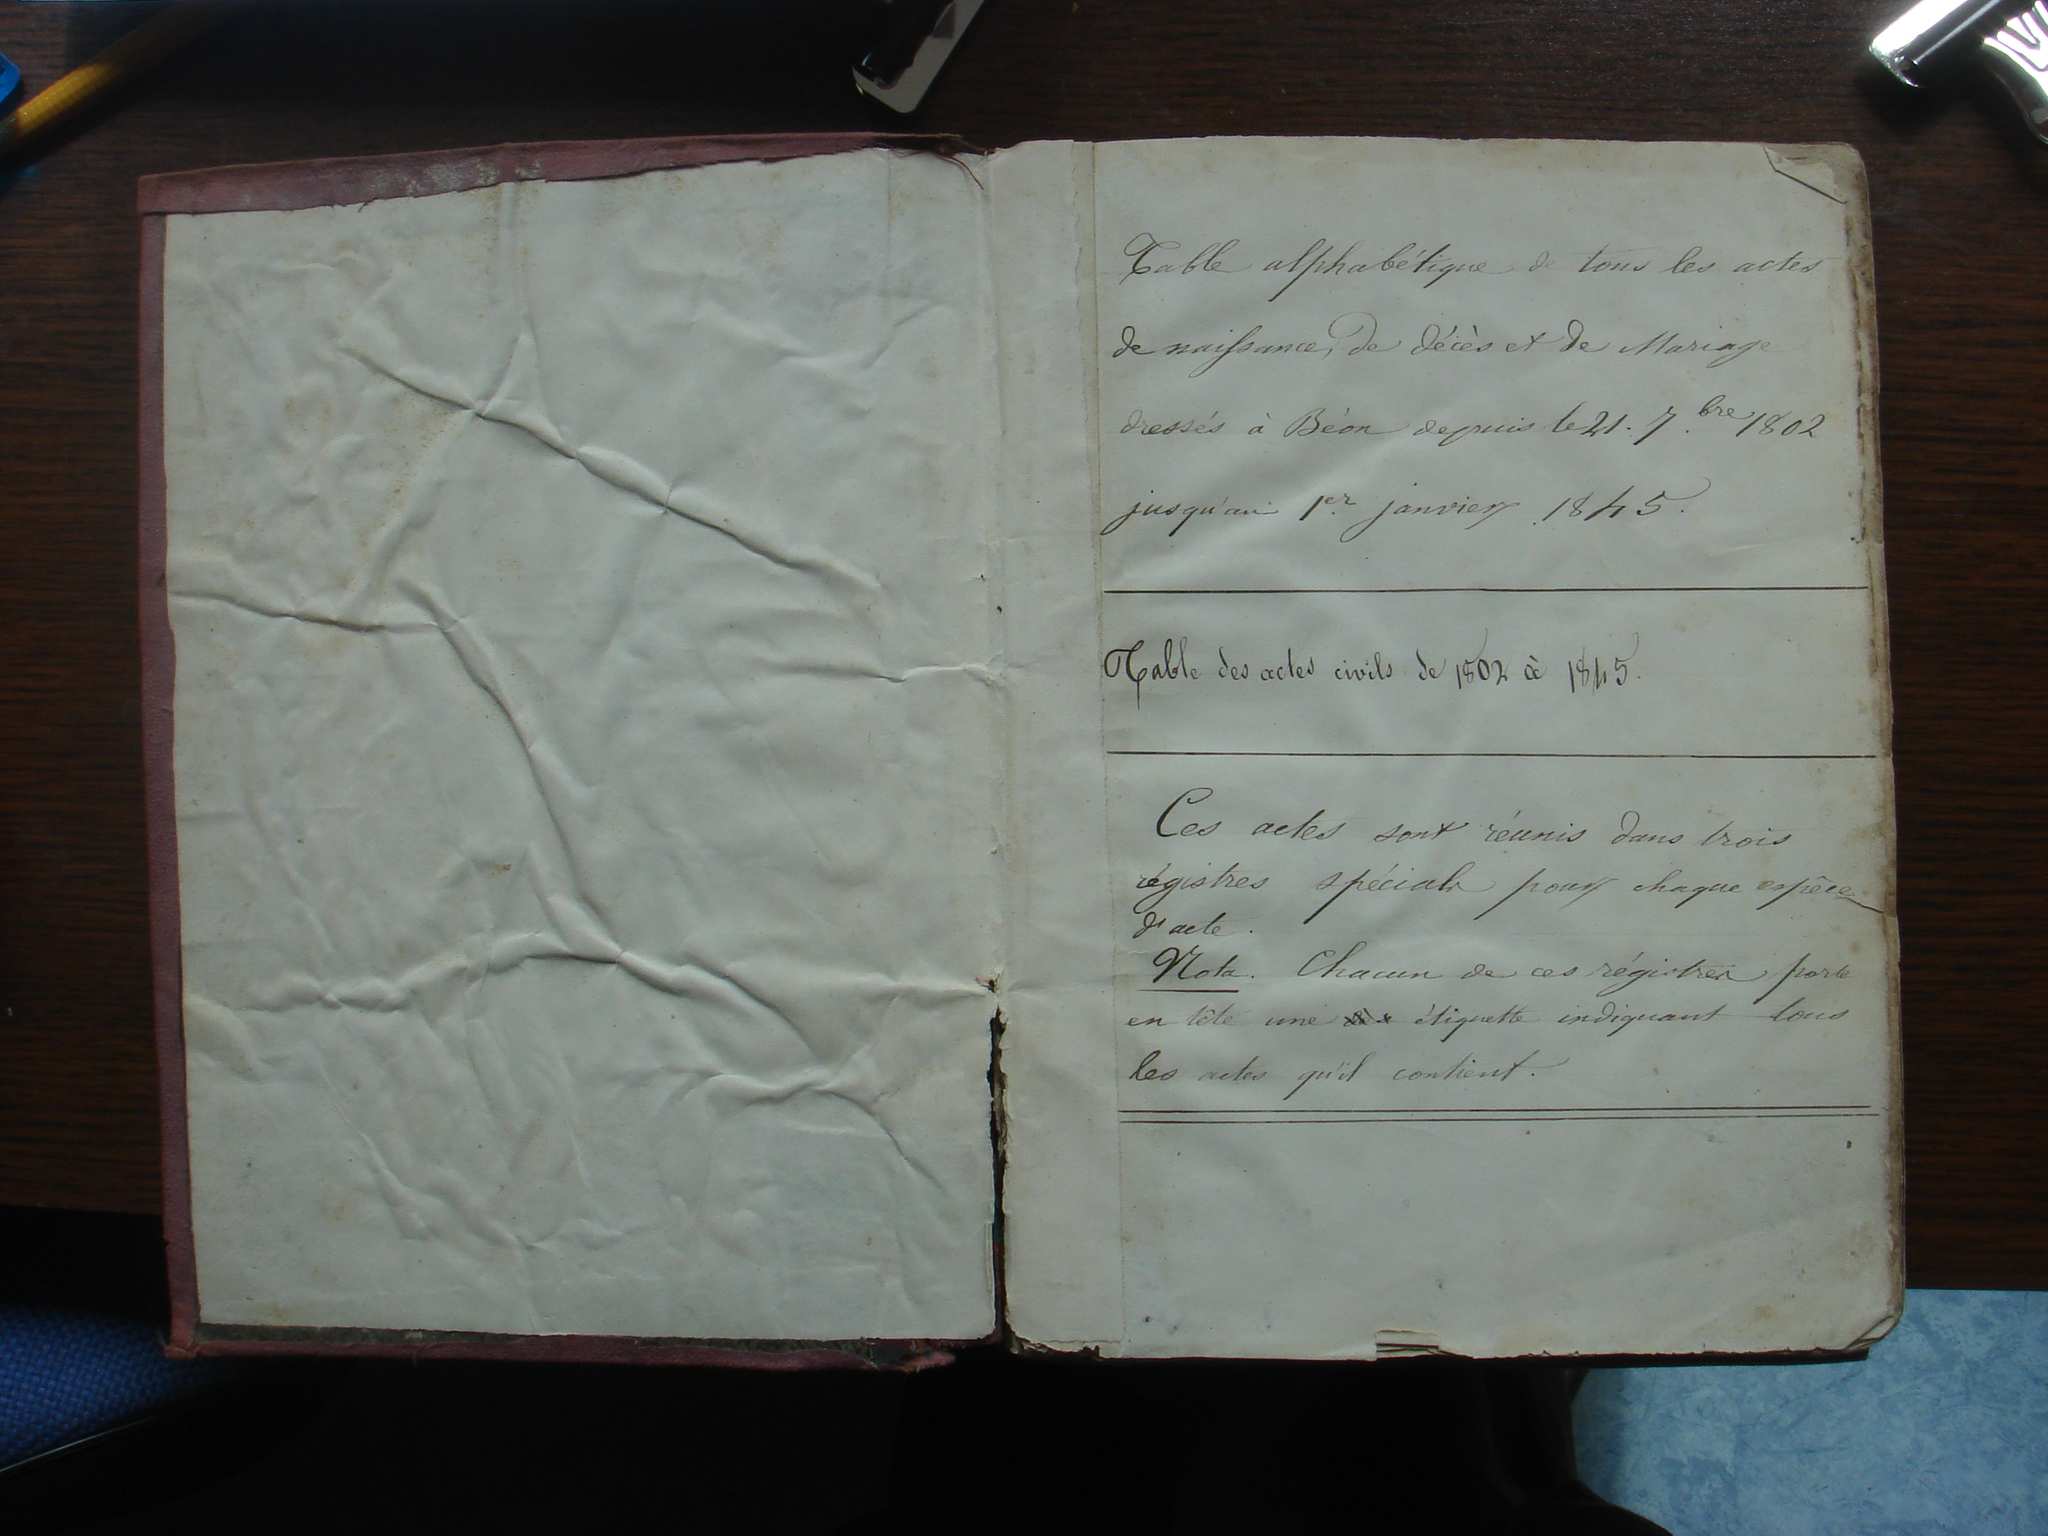 Table alphabétique de tous les actes
de naissance, de décès et de Mariage
dressés à Béon depuis le 21. 7.bre 1802
jusqu'au 1er janvier 1845.
Table des actes civils de 1802 à 1845.
Ces actes sont réunis dans trois
régistres spécials pour chaque espèce
d'acte.
Nota. Chacun de ces régistres porte
en tête une étiquette indiquant tous
les actes qu'il contient.